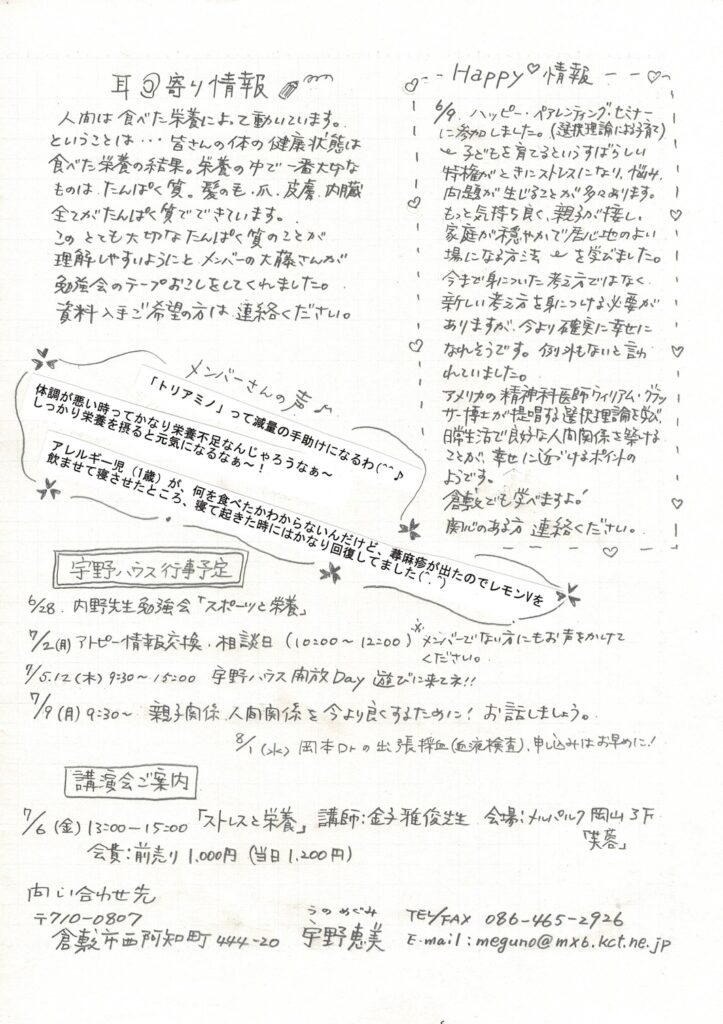 耳より情報
人間は食べた栄養によって動いています。
ということは・・・皆さんの体の健康状態は
食べた栄養の結果。栄養の中で一番大切な
ものは、たんぱく質。髪の毛、爪、皮膚、内臓
全てがたんぱく質でできています。
このとても大切なたんぱく質のことが
理解しやすいようにと、メンバーの大藤さんが
勉強会のテープおこしをしてくれました。
資料入手ご希望の方は、連絡ください。
Happy♡情報
6/9. ハッピー・ペアレンティング・セミナー
に参加しました。(選択理論による子育て)
〜子どもを育てるというすばらしい
特権がときにストレスになり、悩み、
問題が生じることが多々あります。
もっと気持ち良く、親子が接し、
家庭が穏やかで居心地のよい
場になる方法〜を学びました。
今まで身についた考え方ではなく、
新しい考え方を身につける必要が
ありますが、今より確実に幸せに
なれそうです。例外もないと言わ
れていました。
アメリカの精神科医師ウィリアム・グラッ
サー博士が提唱する選択理論を学び、
日常生活で良好な人間関係を築ける
ことが、幸せに近づけるポイントの
ようです。
倉敷でも学べますよ!
関心のある方、連絡ください。
メンバーさんの声♪
「トリアミノ」って減量の手助けになるわ(^^♪
体調が悪い時ってかなり栄養不足なんじゃろうなぁ〜
しっかり栄養を摂ると元気になるなぁ〜!
アレルギー児(1歳)が、何を食べたかわからないんだけど、蕁麻疹が出たのでレモンVを
飲ませて寝させたところ、寝て起きた時にはかなり回復してました(^.^)
宇野ハウス行事予定
6/28. 内野先生勉強会「スポーツと栄養」
7/2(月) アトピー情報交換・相談日 (10:00〜12:00) ※メンバーでない方にもお声をかけて
ください。
7/5.12(木) 9:30〜15:00 宇野ハウス開放Day 遊びに来てネ!!
7/9(月) 9:30〜 親子関係、人間関係を今より良くするために! お話しましょう。
8/1(水) 岡本Drの出張採血(血液検査)、申し込みはお早めに!
講演会ご案内
7/6(金) 13:00-15:00 「ストレスと栄養」 講師:金子雅俊先生 会場:メルパルク岡山3F
「芙蓉」
会費:前売り1,000円 (当日1,200円)
問い合わせ先
〒710-0807
倉敷市西阿知町444-20
うの めぐみ
宇野恵美
TEL/FAX 086-465-2926
E-mail:meguno@mx6.kct.ne.jp